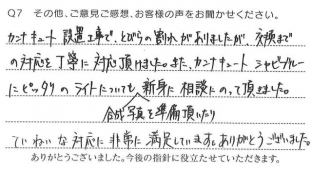 Q7 その他、ご意見ご感想、お客様の声をお聞かせください。
カンナキュート設置工事で、とびらの割れがありましたが、交換まで
の対応を丁寧に対応頂けました。また、カンナキュート シャビーグレー
にピッタリのライトについても、新身に相談にのって頂きました。
合成写真を準備頂いたり
ていねいな対応に非常に満足しています。ありがとうございました。
ありがとうございました。今後の指針に役立たせていただきます。